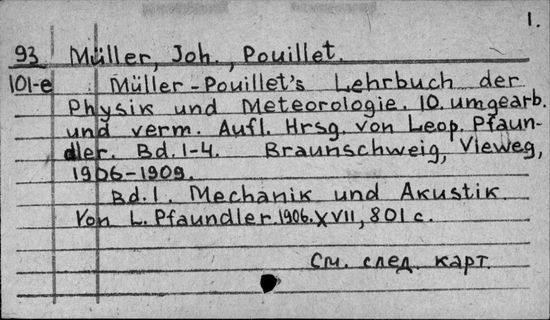 1.
93 Müller, Joh., Pouillet.
101-e Müller-Pouillet's Lehrbuch der
Physik und Meteorologie. 10. umgearb.
und verm. Aufl. Hrsg. von Leop. Pfaun-
dler. Bd. 1-4. Braunschweig, Vieweg,
1906-1909.
Bd. 1. Mechanik und Akustik.
Von L. Pfaundler. 1906. XVII, 801 c.
См. след. карт.